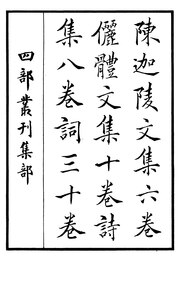 陳迦陵文集六卷
儷體文集十卷詩
集八卷詞三十卷
四部叢刊集部